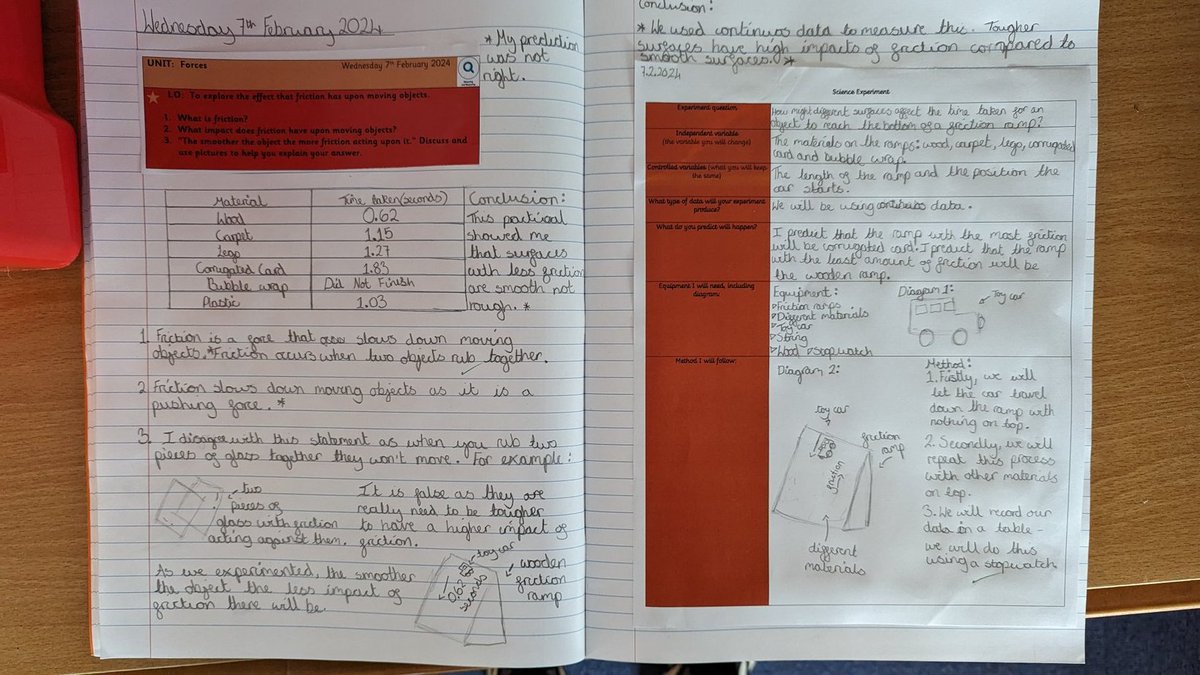 Wednesday 7th February 2024
* My prediction
was not
right.
UNIT: Forces
Wednesday 7th February 2024
LO: To explore the effect that friction has upon moving objects.
1. What is friction?
2. What impact does friction have upon moving objects?
3. "The smoother the object the more friction acting upon it." Discuss and
use pictures to help you explain your answer.
Material Time taken(seconds)
Wood 0.62
Carpet 1.15
Lego 1.27
Corrugated Card 1.83
Bubble wrap Did Not Finish
Plastic 1.03
Conclusion:
This practical
showed me
that surfaces
with less friction
are smooth not
rough. *
1. Friction is a force that slows down moving
objects. *Friction occurs when two objects rub together.
2 Friction slows down moving objects as it is a
pushing force. *
3. I disagree with this statement as when you rub two
pieces of glass together they won't move. For example:
two
pieces of
glass with friction
acting against them.
It is false as they are
really need to be tougher
to have a higher impact of
friction.
As we experimented, the smoother
the object the less impact of
friction there will be.
toy car
0.62
seconds
wooden
friction
ramp
Conclusion:
* We used continuos data to measure this. Tougher
surfaces have high impacts of friction compared to
smooth surfaces. *
7.2.2024
Science Experiment
Experiment question
How might different surfaces affect the time taken for an
object to reach the bottom of a friction ramp?
Independent variable
(the variable you will change)
The materials on the ramps: wood, carpet, lego, corrugated
card and bubble wrap.
Controlled variables (what you will keep
the same)
The length of the ramp and the position the
car starts.
What type of data will your experiment
produce?
We will be using continuos data.
What do you predict will happen?
I predict that the ramp with the most friction
will be corrugated card. I predict that the ramp
with the least amount of friction will be
the wooden ramp.
Equipment I will need, including
diagram:
Equipment:
Friction ramps
Different materials
Toy car
String
Wood Stopwatch
Diagram 1:
Toy car
Method I will follow:
Diagram 2:
toy car
friction
ramp
friction
different
materials
Method:
1. Firstly, we will
let the car travel
down the ramp with
nothing on top.
2. Secondly, we will
repeat this process
with other materials
on top.
3. We will record our
data in a table -
we will do this
using a stopwatch